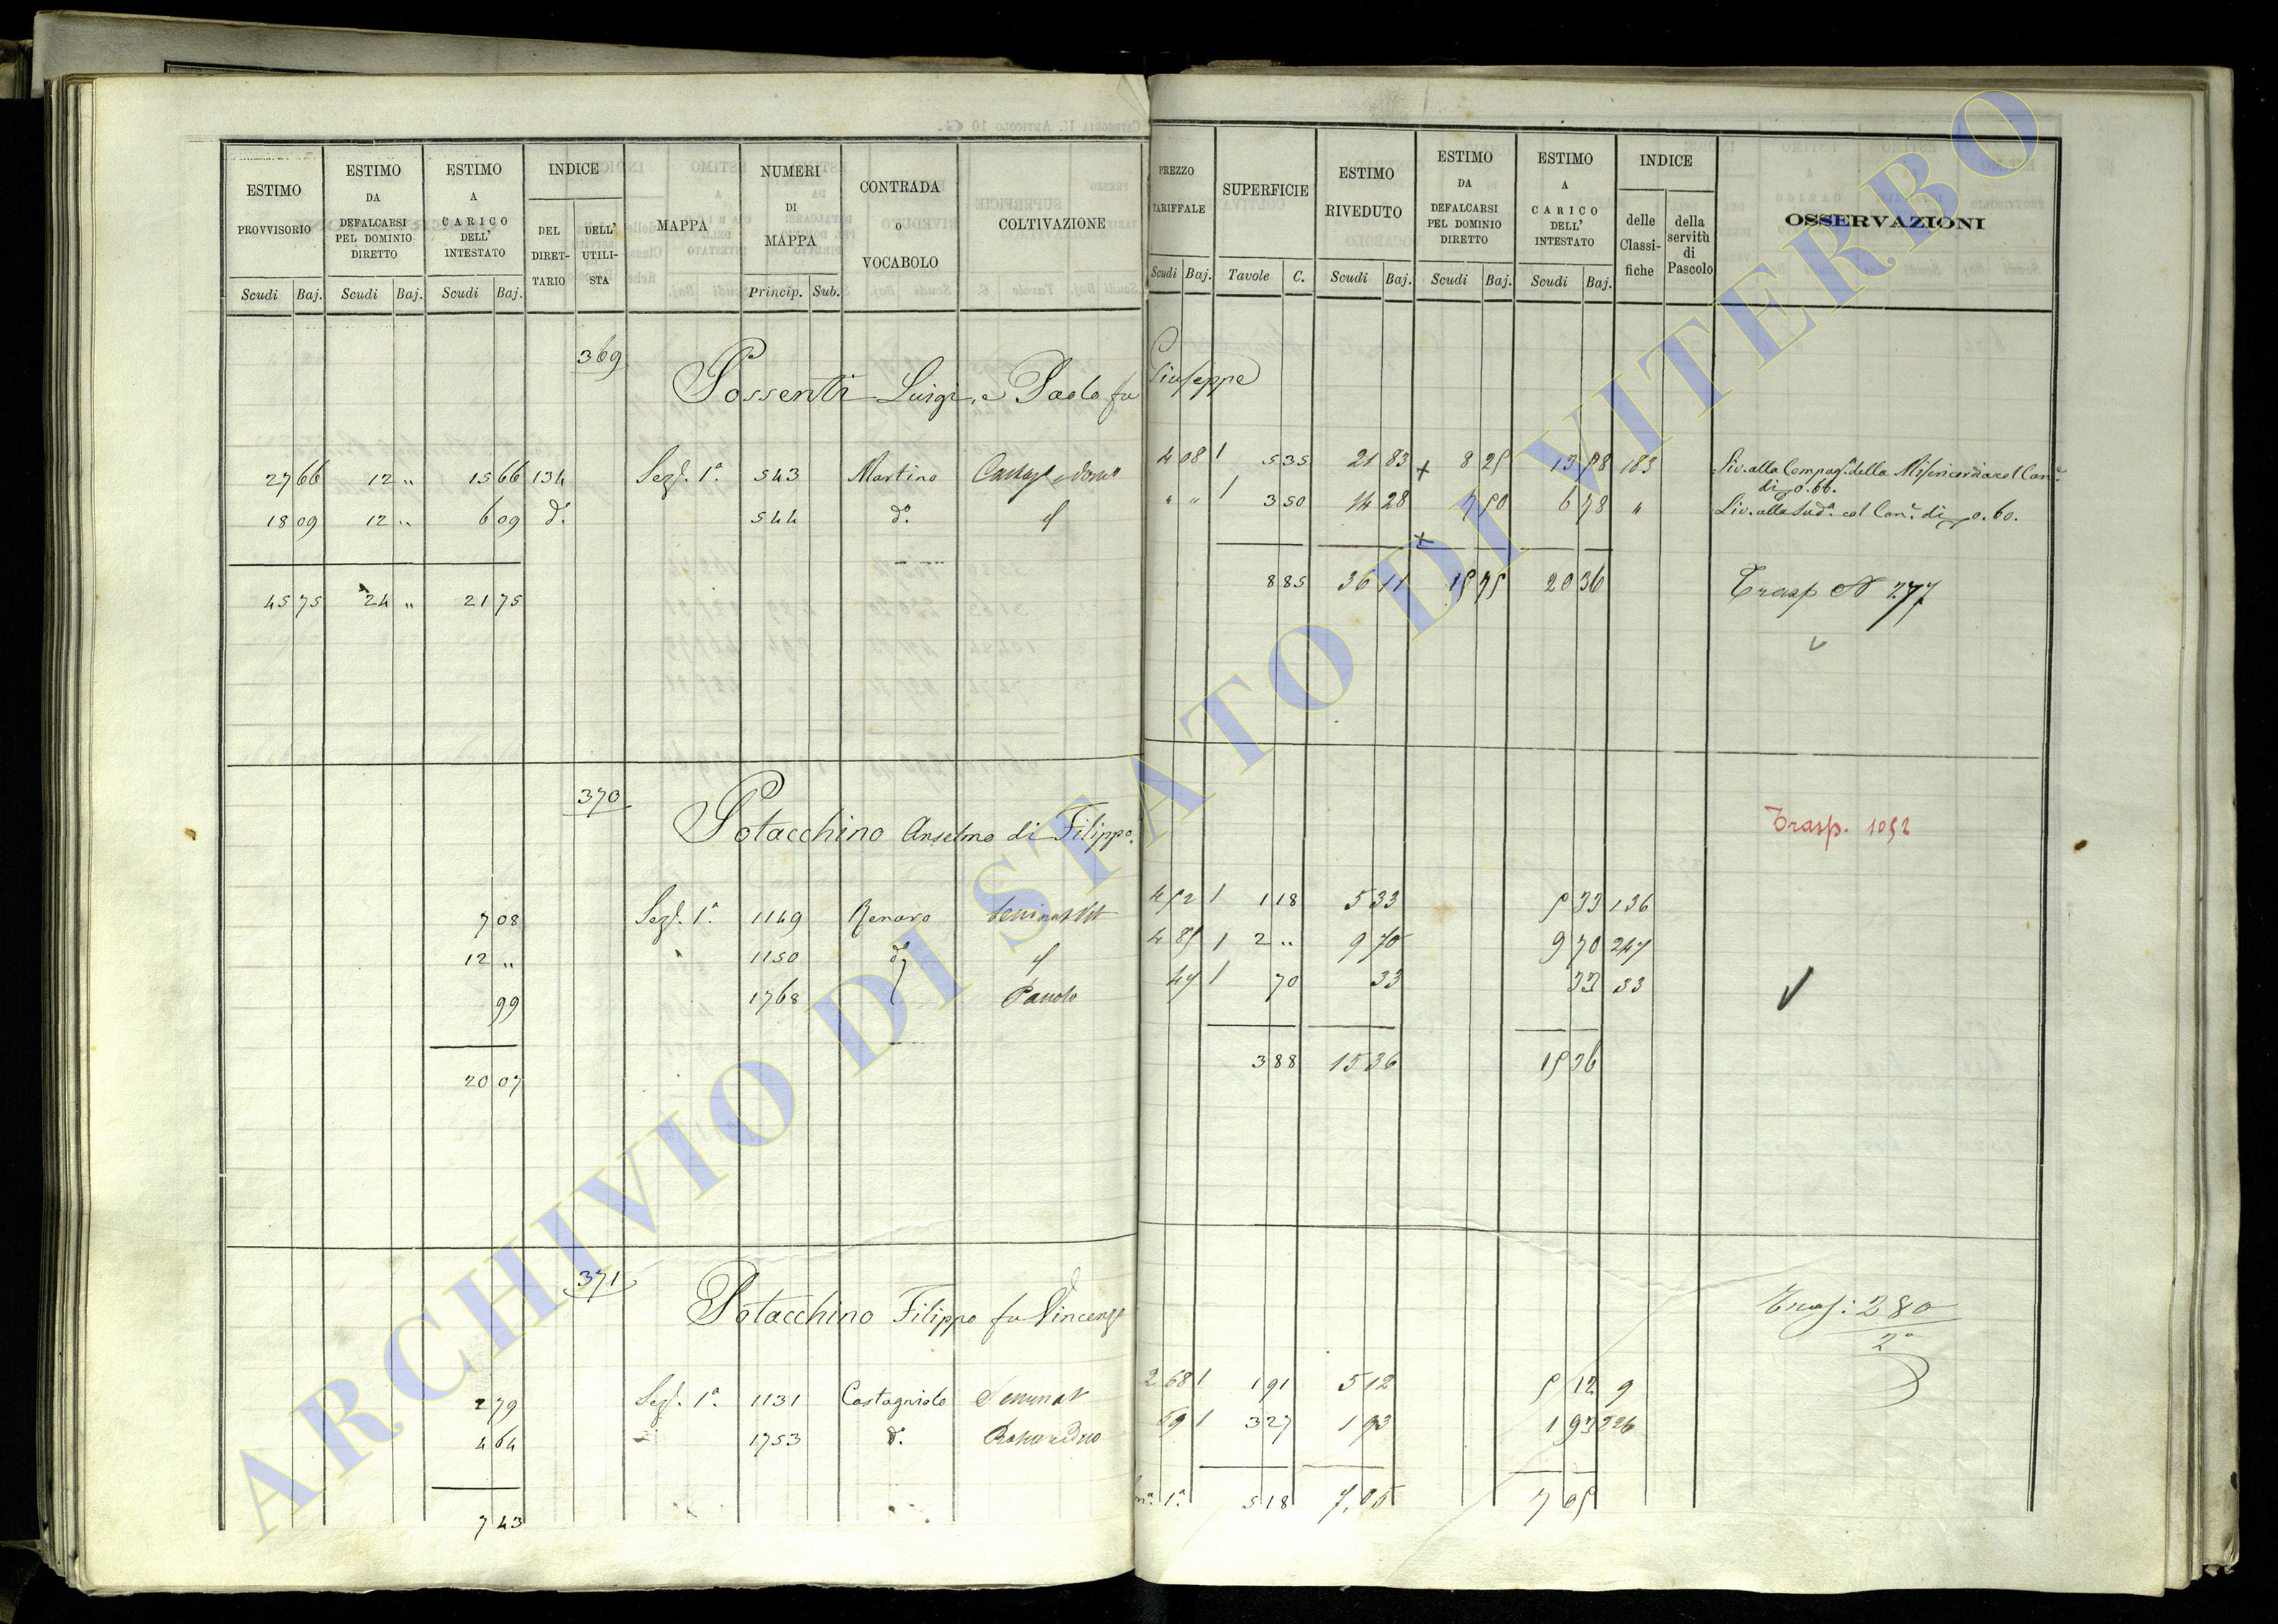 ESTIMO PROVVISORIO Scudi Baj.
ESTIMO DA DEFALCARSI PEL DOMINIO DIRETTO Scudi Baj.
ESTIMO A CARICO DELL' INTESTATO Scudi Baj.
INDICE DEL DIRETTARIO DELL' UTILISTA
MAPPA
NUMERI DI MAPPA Princip. Sub.
CONTRADA o VOCABOLO
COLTIVAZIONE
PREZZO TARIFFALE Scudi Baj.
SUPERFICIE Tavole C.
ESTIMO RIVEDUTO Scudi Baj.
ESTIMO DA DEFALCARSI PEL DOMINIO DIRETTO Scudi Baj.
ESTIMO A CARICO DELL' INTESTATO Scudi Baj.
INDICE delle Classifiche della servitù di Pascolo
OSSERVAZIONI
369
Possenti Luigi, e Paolo fu Giuseppe
27 66 12 " 15 66 134 Seze. 1ª. 543 Martino 4 08 1 5 35 21 83 + 8 25 13 58 183 Liv. alla Compagª. della Misericordia col Can.e di 0.66.
18 09 12 " 6 09 dº. 544 dº. " " 1 3 50 14 28 7 50 6 78 " Liv. alla Sudª. col Can.e di 0.60.
45 75 24 " 21 75 8 85 36 11 15 75 20 36 Trasp N 277
370
Potacchino Anselmo di Filippo
Trasp. 1052
7 08 Seze. 1ª. 1149 4 52 1 1 18 5 33 5 33 136
12 " 1150 dº 4 85 1 2 " 9 70 9 70 247
99 1768 47 1 70 33 33 33
20 07 3 88 15 36 15 36
371
Potacchino Filippo fu Vincenzo
Trasp: 280
2º
2 79 Seze. 1ª. 1131 Castagnolo Seminat 2 68 1 1 91 5 12 5 12 9
4 64 1753 dº. 59 1 3 27 1 93 1 93 226
7 43 5 18 7,05 7 05
ARCHIVIO DI STATO DI VITERBO